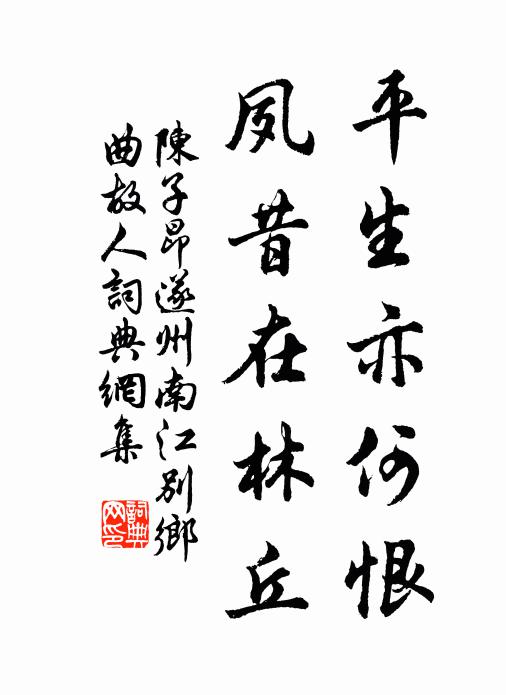 平生亦何恨
夙昔在林丘
陳子昂遂州南江別鄉
曲故人詞典網集
詞典
网印